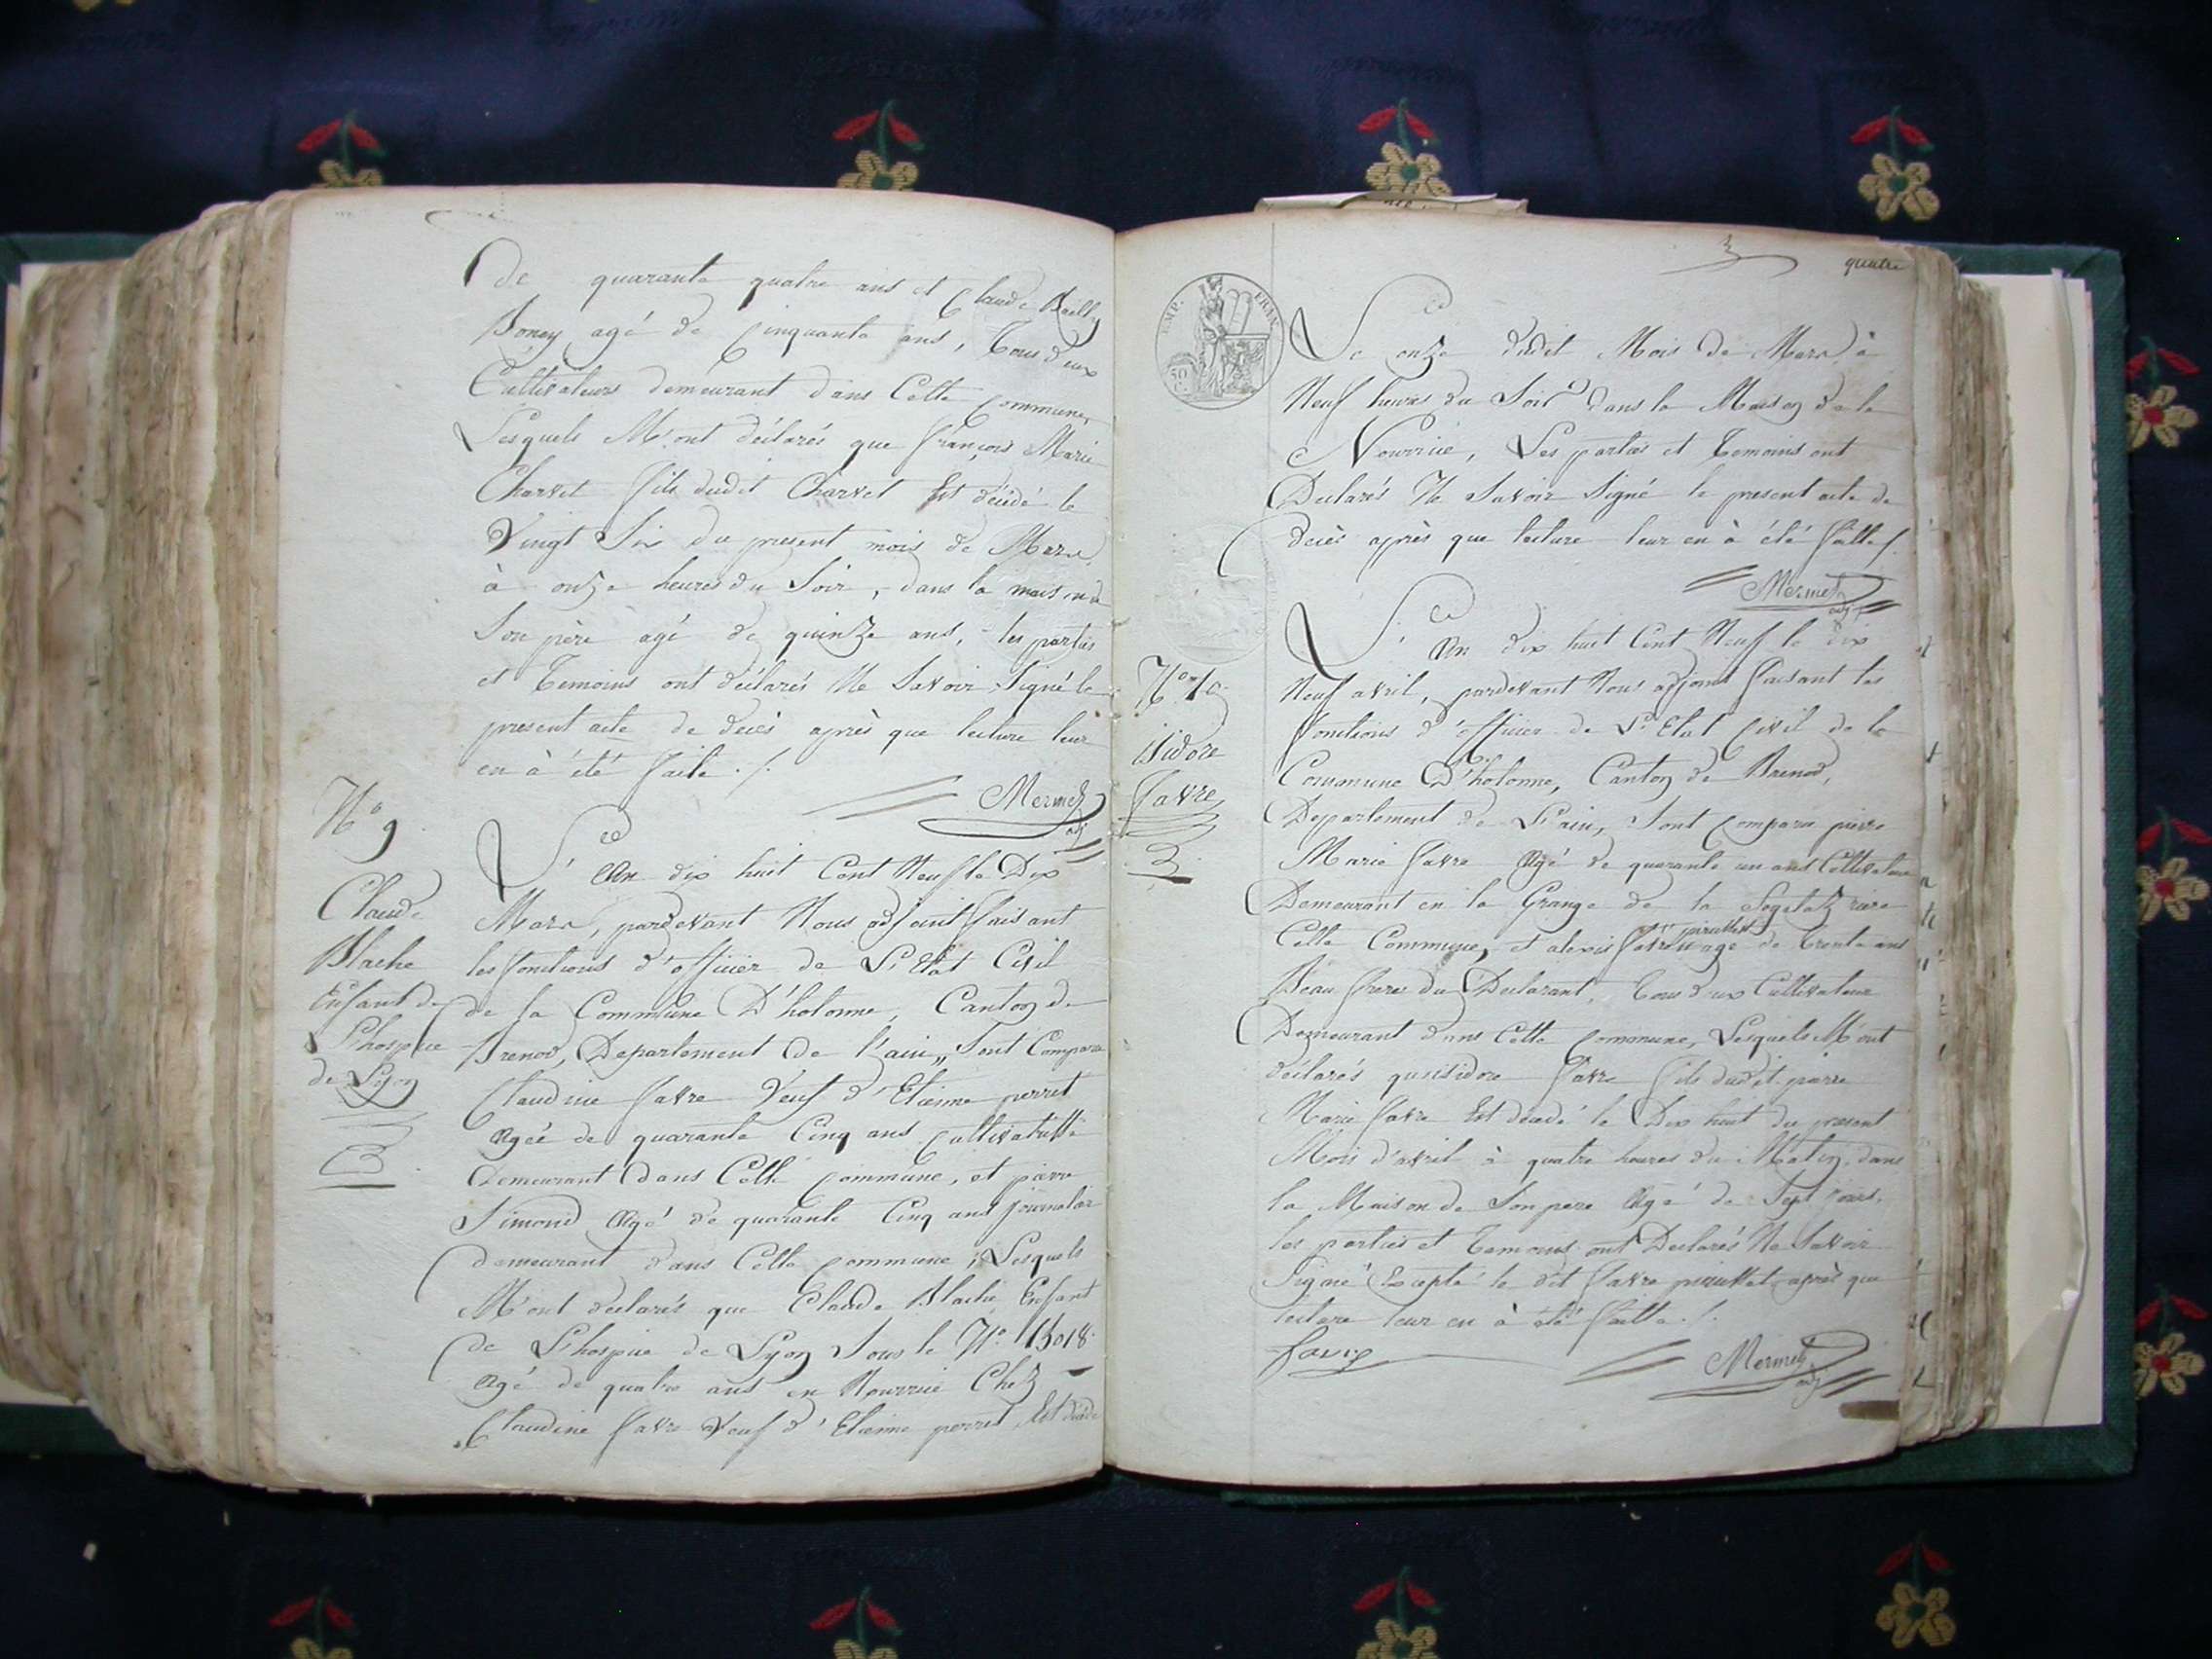 de quarante quatre ans et Claude Bailly
Boney agé de Cinquante ans, Tous deux
Cultivateurs demeurant dans Cette Commune,
Lesquels M'ont déclarés que François Marie
Charvet fils dudit Charvet Est décédé le
Vingt Six du present mois de Mars
à onze heures du Soir, dans la maison de
Son père agé de quinze ans, les parties
et Temoins ont déclarés Ne Savoir Signé le
present acte de decès après que lecture leur
en à été faite ./.
Mermet
adj
N° 9
Claude
Blache
Enfant de
L'hospice
de Lyon
L'An dix huit Cent Neuf le Dix
Mars, pardevant Nous adjoint faisant
les fonctions d'officier de L'Etat Civil
de la Commune D'hotonne, Canton de
Brenod, Departement de l'ain, Sont Comparu
Claudine favre Veuf d'Etienne perret
Agée de quarante Cinq ans Cultivatrisse
Demeurant Dans Cette Commune, et pierre
Simond Agé de quarante Cinq ans journalier
demeurant dans Cette Commune, Lesquels
M'ont déclarés que Claude Blache Enfant
de L'hospice de Lyon Sous le N° 15018
Agé de quatre ans en Nourrice Chez
Claudine favre Veuf d'Etienne perret Est décédé
quatre
EMP. FRAN.
50 C.
Le onze dudit Mois de Mars à
Neuf heures du Soir dans la Maison de la
Nourrice, Les parties et Temoins ont
Declarés Ne Savoir Signé le present acte de
decès après que lecture leur en à été faitte ./.
Mermet
adj
N° 10
isidore
favre
L'An dix huit Cent Neuf le dix
Neuf avril, pardevant Nous adjoint faisant les
fonctions d'officier de L'Etat Civil de la
Commune D'hotonne, Canton de Brenod,
Departement de L'ain, Sont Comparu pierre
Marie favre Agé de quarante un ans Cultivateur
Demeurant en la Grange de la rière
Cette Commune, et alexis favre agé de Trente ans
Beau frere du Declarant, Tous deux Cultivateur
Demeurant dans Cette Commune, Lesquels M'ont
déclarés qu'isidore favre fils dudit pierre
Marie favre Est décedé le Dix huit du present
Mois d'avril à quatre heures du Matin, dans
la Maison de Son pere Agé de Sept
les parties et Temoins ont Declarés Ne Savoir
Signé Excepté le dit favre après que
lecture leur en à été faitte ./.
favre
Mermet
adj